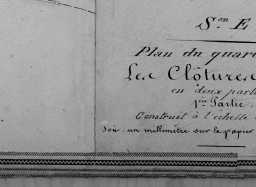 Son E
Plan du quar
Les Clôture
en deux part
1ère Partie.
Construit à l'échelle
Soit un millimètre sur le papier